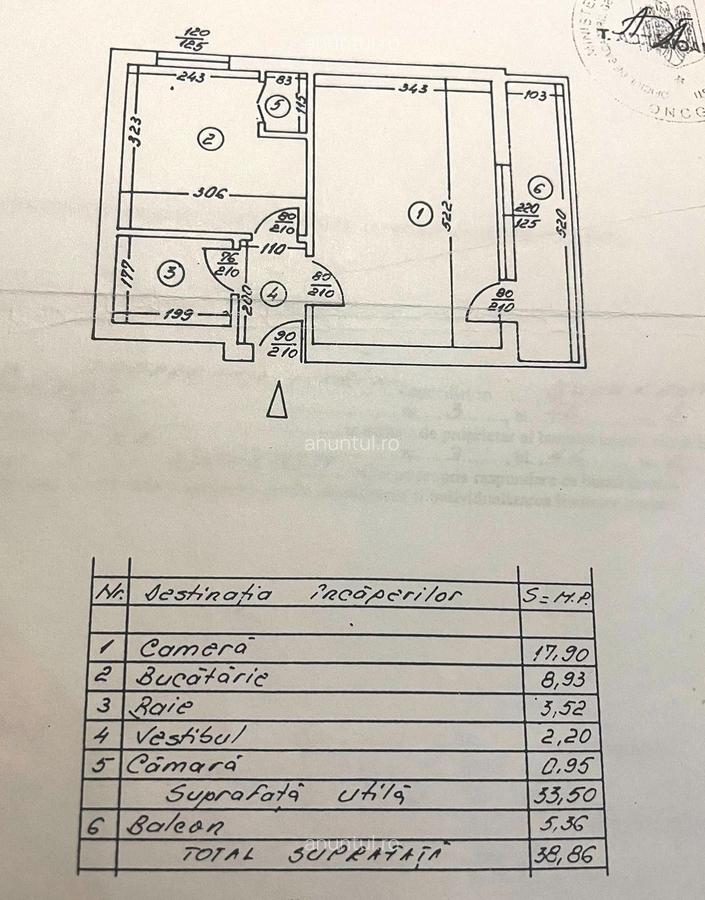 120
125
243
83
5
115
343
103
323
2
306
1
522
6
220
125
520
80
210
110
3
76
210
177
4
200
80
210
80
210
199
90
210
anuntul.ro
Nr. Destinația încăperilor S=M.P.
1 Cameră 17,90
2 Bucătărie 8,93
3 Baie 3,52
4 Vestibul 2,20
5 Cămară 0,95
Suprafață utilă 33,50
6 Balcon 5,36
anuntul.ro
TOTAL SUPRAFAȚĂ 38,86